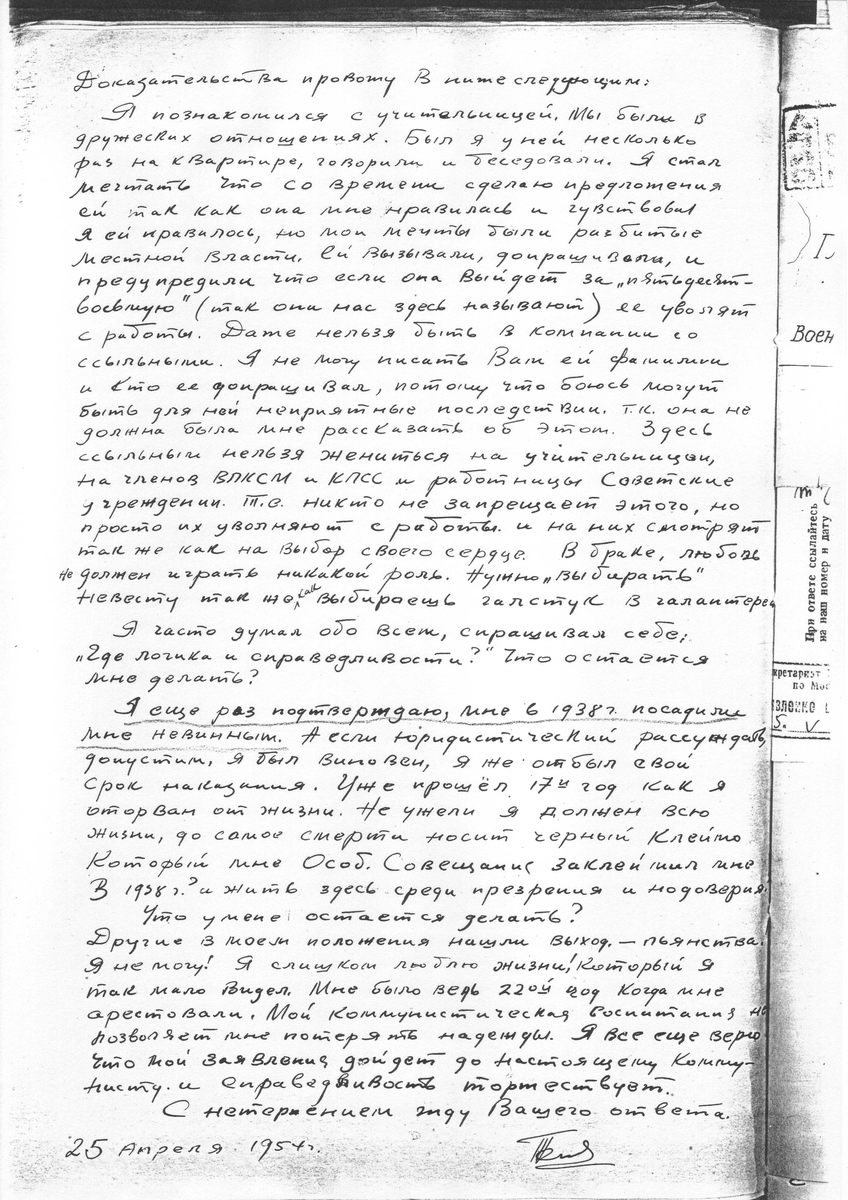 Доказательства провожу в нижеследующим:
Я познакомился с учительницей. Мы были в
дружеских отношениях. Был я у ней несколько
раз на квартире, говорили и беседовали. Я стал
мечтать что со времени сделаю предложения
ей так как она мне нравилась и чувствовал
я ей нравилось, но мои мечты были разбитые
местной власти. Ей вызывали, допращивали, и
предупредили что если она выйдет за „пятьдесят-
восьмую" (так они нас здесь называют) ее уволят
с работы. Даже нельзя быть в компании со
ссыльными. Я не могу писать Вам ей фамилии
и кто ее допращивал, потому что боюсь могут
быть для ней неприятные последствии. т.к. она не
должна была мне рассказать об этом. Здесь
ссыльным нельзя жениться на учительницы,
на членов ВЛКСМ и КПСС и работницы Советские
учреждении. Т.е. никто не запрещает этого, но
просто их уволняют с работы. и на них смотрят
так же как на выбор своего сердце. В браке, любовь
не должен играть никакой роль. Нужно „выбирать"
невесту так же как выбираешь галстук в галантереи
Я часто думал обо всем, спрашивал себе;
„Где логика и справедливости?" Что остаётся
мне делать?
Я еще раз подтверждаю, мне в 1938 г. посадили
мне невинным. А если юридистический рассуждать,
допустим, я был виновен, я же отбыл свой
срок наказания. Уже прошёл 17й год как я
оторван от жизни. Не ужели я должен всю
жизни, до самое смерти носит черный клеймо
который мне Особ. Совещание заклеймил мне
В 1938 г.? и жить здесь среди презрения и недоверия.
Что у мене остается делать?
Другие в моем положения нашли выход. — пьянства.
Я не могу! Я слишком люблю жизни! который я
так мало видел. Мне было ведь 22ой год когда мне
арестовали. Мой коммунистическая воспитания не
позволяет мне потерять надежды. Я все еще верю
что мой заявления дойдет до настоящему комму-
нисту. и справедливость торжествует.
С нетерпением жду Вашего ответа.
25 Апреля 1954 г.
Воен
При ответе ссылайтесь
на наш номер и дату
кретариат
по Мос